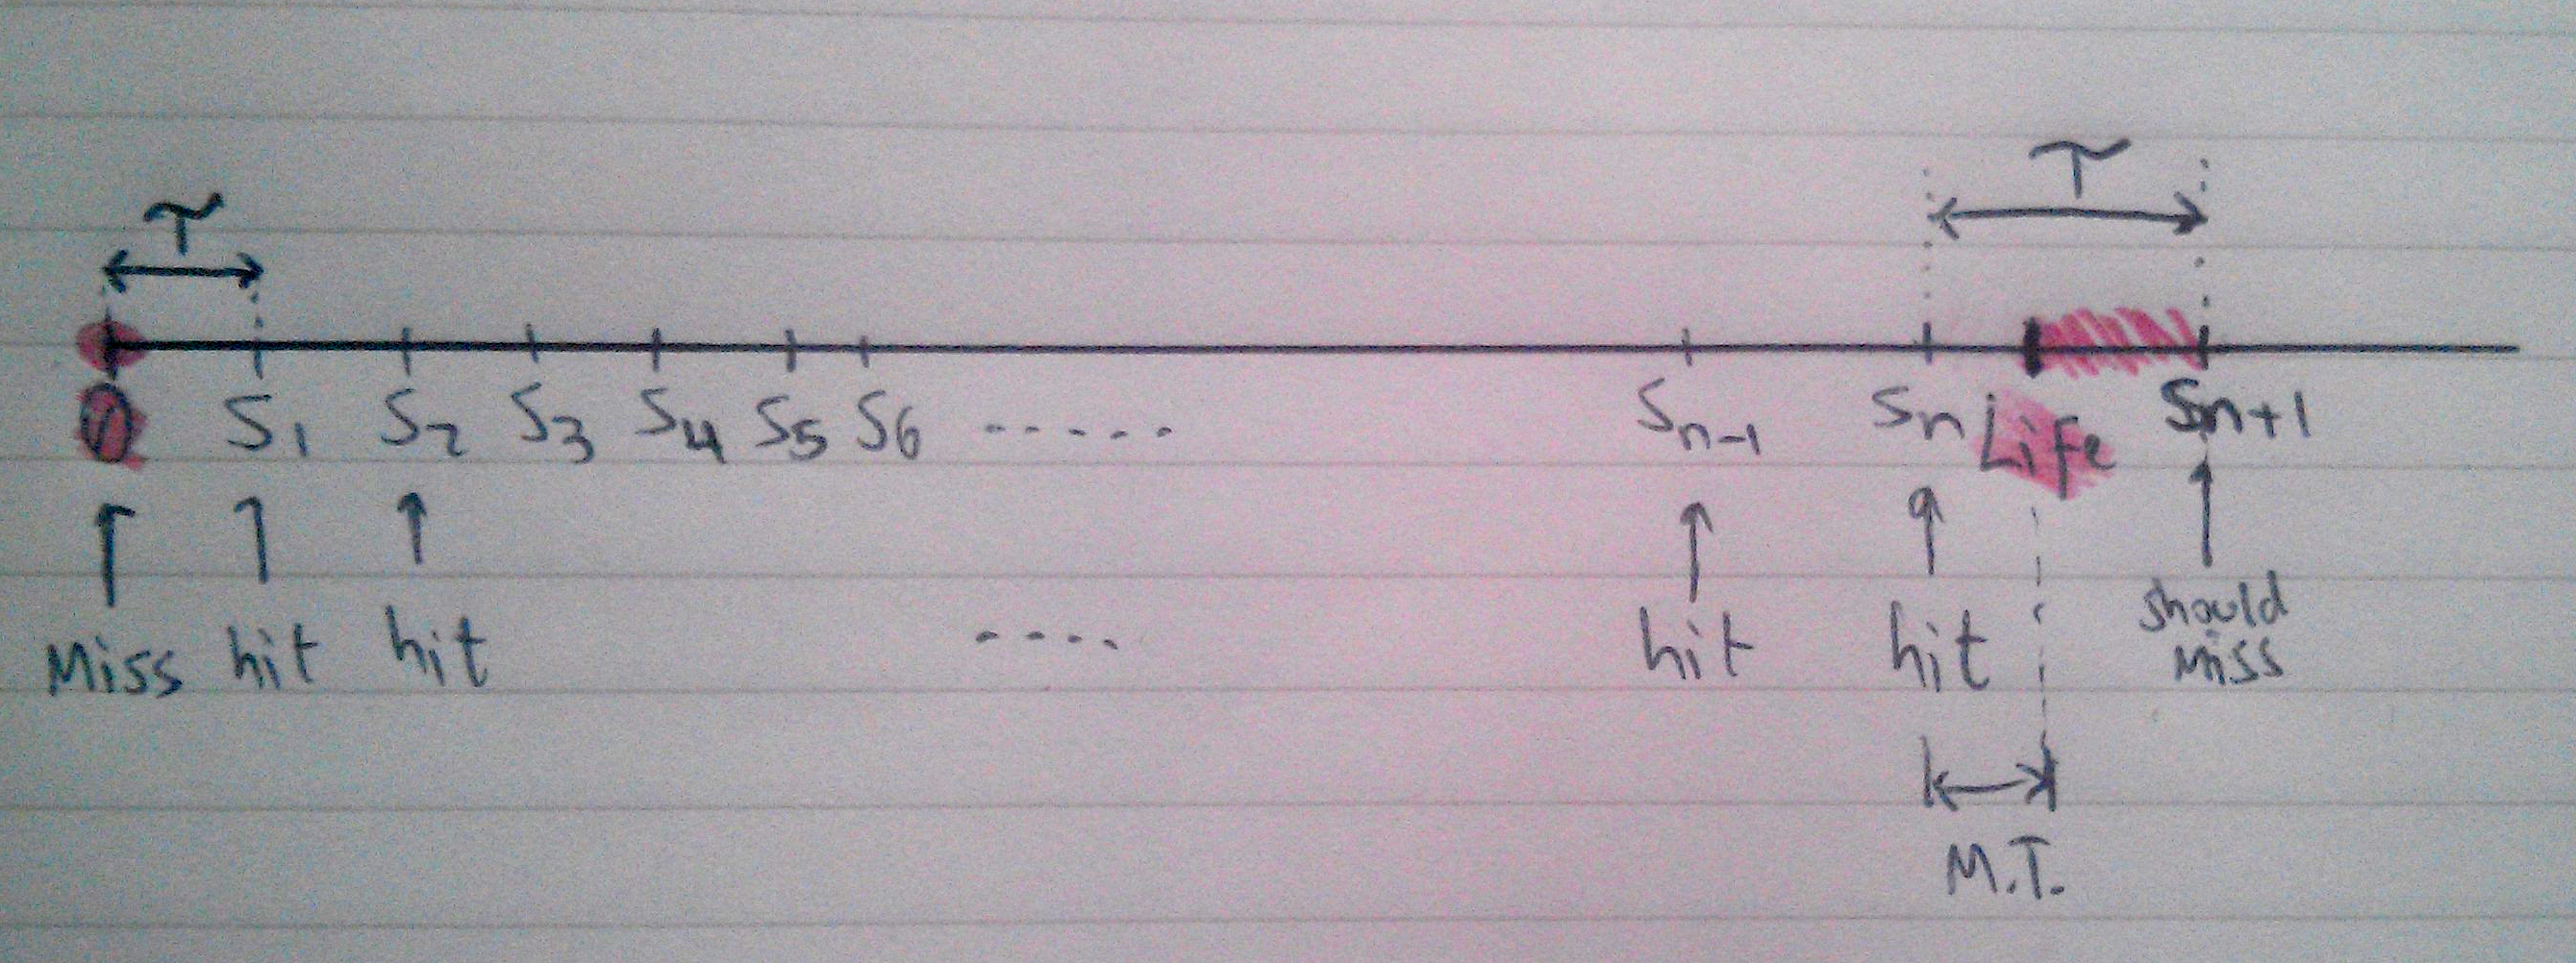 T
T
0 S1 S2 S3 S4 S5 S6 ..... Sn-1 Sn Life Sn+1
Miss hit hit .... hit hit should
miss
M.T.